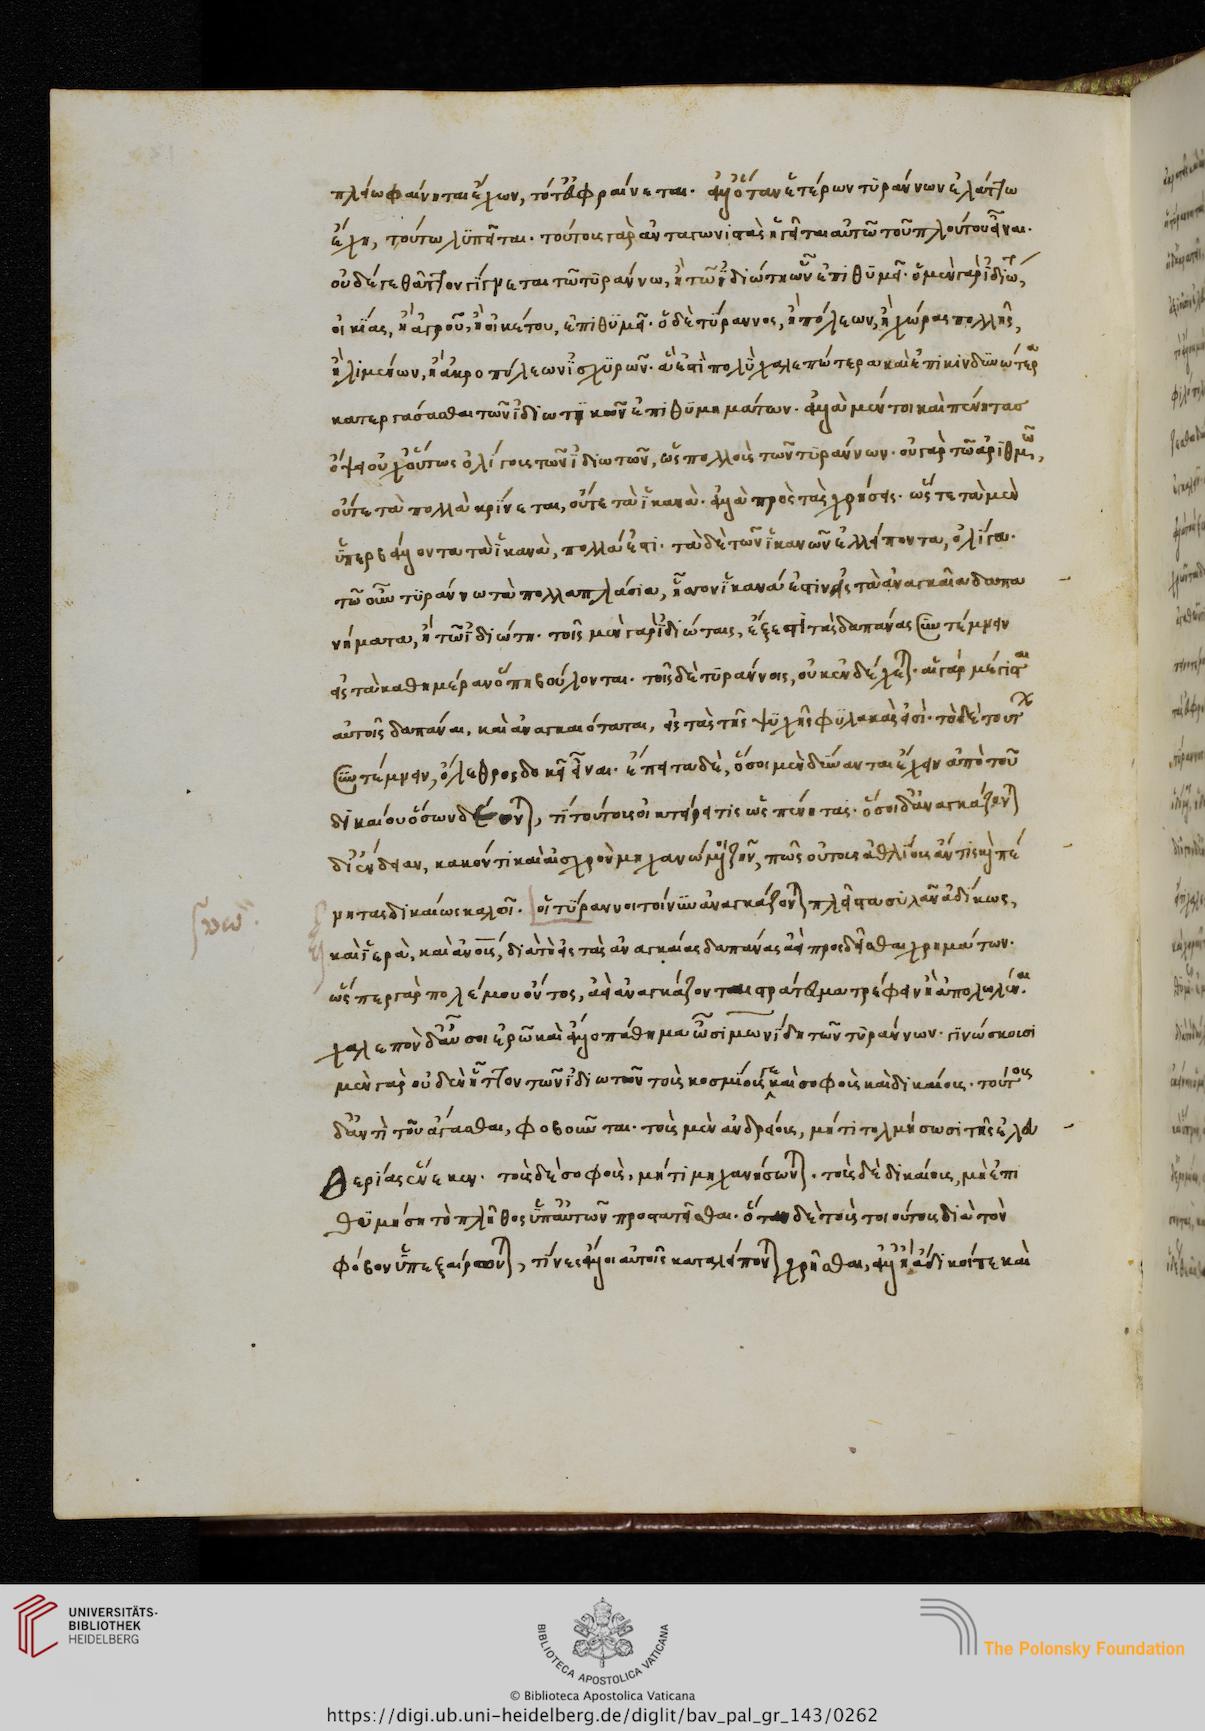 πλείω φαίνηται ἔχων, τότ' εὐφραίνεται. ἀλλ' ὅταν ἑτέρων τϋράννων ἐλάττω
ἔχη, τούτω λϋπεῖται. τούτους γὰρ ἀνταγωνιστὰς ἡγεῖται αὐτῶ τοῦ πλούτου εἶναι.
οὐδέ γε θᾶττον γίγνεται τῶ τϋράννω, ἢ τῶ ἰδιώτη ὧν ἐπιθϋμεῖ. ὁ μὲν γὰρ ἰδιώτης,
οἰκίας, ἢ ἀγροῦ, ἢ οἰκέτου, ἐπιθϋμεῖ. ὁ δὲ τϋράννος, ἢ πόλεων, ἢ χώρας πολλῆς,
ἢ λιμένων, ἢ ἀκροπόλεων ἰσχϋρῶν. ἅ ἐστι πολὺ χαλεπώτερα καὶ ἐπικινδϋνότερα
κατεργάσασθαι τῶν ἰδιωτικῶν ἐπιθϋμημάτων. ἀλλὰ μέντοι καὶ πένητας
ὄψει οὐχ οὕτως ὀλίγους τῶν ἰδιωτῶν, ὡς πολλοὺς τῶν τϋράννων. οὐ γὰρ τῶ ἀριθμῶ,
οὔτε τὰ πολλὰ κρίνεται, οὔτε τὰ ἱκανὰ. ἀλλὰ πρὸς τὰς χρήσεις. ὥστε τὰ μὲν
ὑπερβάλλοντα τὰ ἱκανὰ, πολλά ἐστι. τὰ δὲ τῶν ἱκανῶν ἐλλείποντα, ὀλίγα.
τῶ οὖν τϋράννω τὰ πολλαπλάσια, ἧττον ἱκανά ἐστιν εἰς τὰ ἀναγκαῖα δαπα
νήματα, ἢ τῶ ἰδιώτη. τοῖς μὲν γὰρ ἰδιώταις, ἔξεστι τὰς δαπάνας συντέμνειν
εἰς τὰ καθημέραν ὅπη βούλονται. τοῖς δὲ τϋράννοις, οὐκ ἐνδέχεται. αἱ γὰρ μέγισται
αὐτοῖς δαπάναι, καὶ ἀναγκαιόταται, εἰς τὰς τῆς ψϋχῆς φϋλακὰς εἰσὶ. τὸ δὲ τούτων
συντέμνειν, ὄλεθρος δοκεῖ εἶναι. ἔπειτα δὲ, ὅσοι μὲν δύνανται ἔχειν ἀπὸ τοῦ
δικαίου ὅσων δέονται, τί τούτους οἰκτείρει τις ὡς πένητας. ὅσοι δ' ἀναγκάζονται
δι' ἔνδειαν, κακόν τι καὶ αἰσχρὸν μηχανώμενοι ζῆν, πῶς οὐ τούτους ἀθλίους ἄν τις καὶ πέ
νητας δικαίως καλοῖ. οἱ τϋράννοι τοίνϋν ἀναγκάζονται πλεῖστα σϋλᾶν ἀδίκως,
καὶ ἱερὰ, καὶ ἀνους, διὰ τὸ εἰς τὰς ἀναγκαίας δαπάνας ἀεὶ προσδεῖσθαι χρημάτων.
ὥσπερ γὰρ πολέμου ὄντος, ἀεὶ ἀναγκάζονται στράτευμα τρέφειν ἢ ἀπολωλέναι.
χαλεπὸν δ' αὖ σοι ἐρῶ καὶ ἄλλο πάθημα ὦ σιμωνίδη τῶν τϋράννων. γινώσκουσι
μὲν γὰρ οὐδὲν ἧττον τῶν ἰδιωτῶν τοὺς κοσμίους τε καὶ σοφοὺς καὶ δικαίους. τούτους
δ' ἀντὶ τοῦ ἄγασθαι, φοβοῦνται. τοὺς μὲν ἀνδρείους, μήτι τολμήσωσι τῆς ἐλευ
θερίας ἕνεκεν. τοὺς δὲ σοφοὺς, μήτι μηχανήσωνται. τοὺς δὲ δικαίους, μὴ ἐπι
θϋμήση τὸ πλῆθος ὑπ' αὐτῶν προστατεῖσθαι. ὅταν δὲ τοὺς τοιούτους διὰ τὸν
φόβον ὑπεξαίρωνται, τίνες ἄλλοι αὐτοῖς καταλείπονται χρῆσθαι, ἀλλ' ἢ ἄδικοί τε καὶ
UNIVERSITÄTS-
BIBLIOTHEK
HEIDELBERG
BIBLIOTECA APOSTOLICA VATICANA
The Polonsky Foundation
© Biblioteca Apostolica Vaticana
https://digi.ub.uni-heidelberg.de/diglit/bav_pal_gr_143/0262